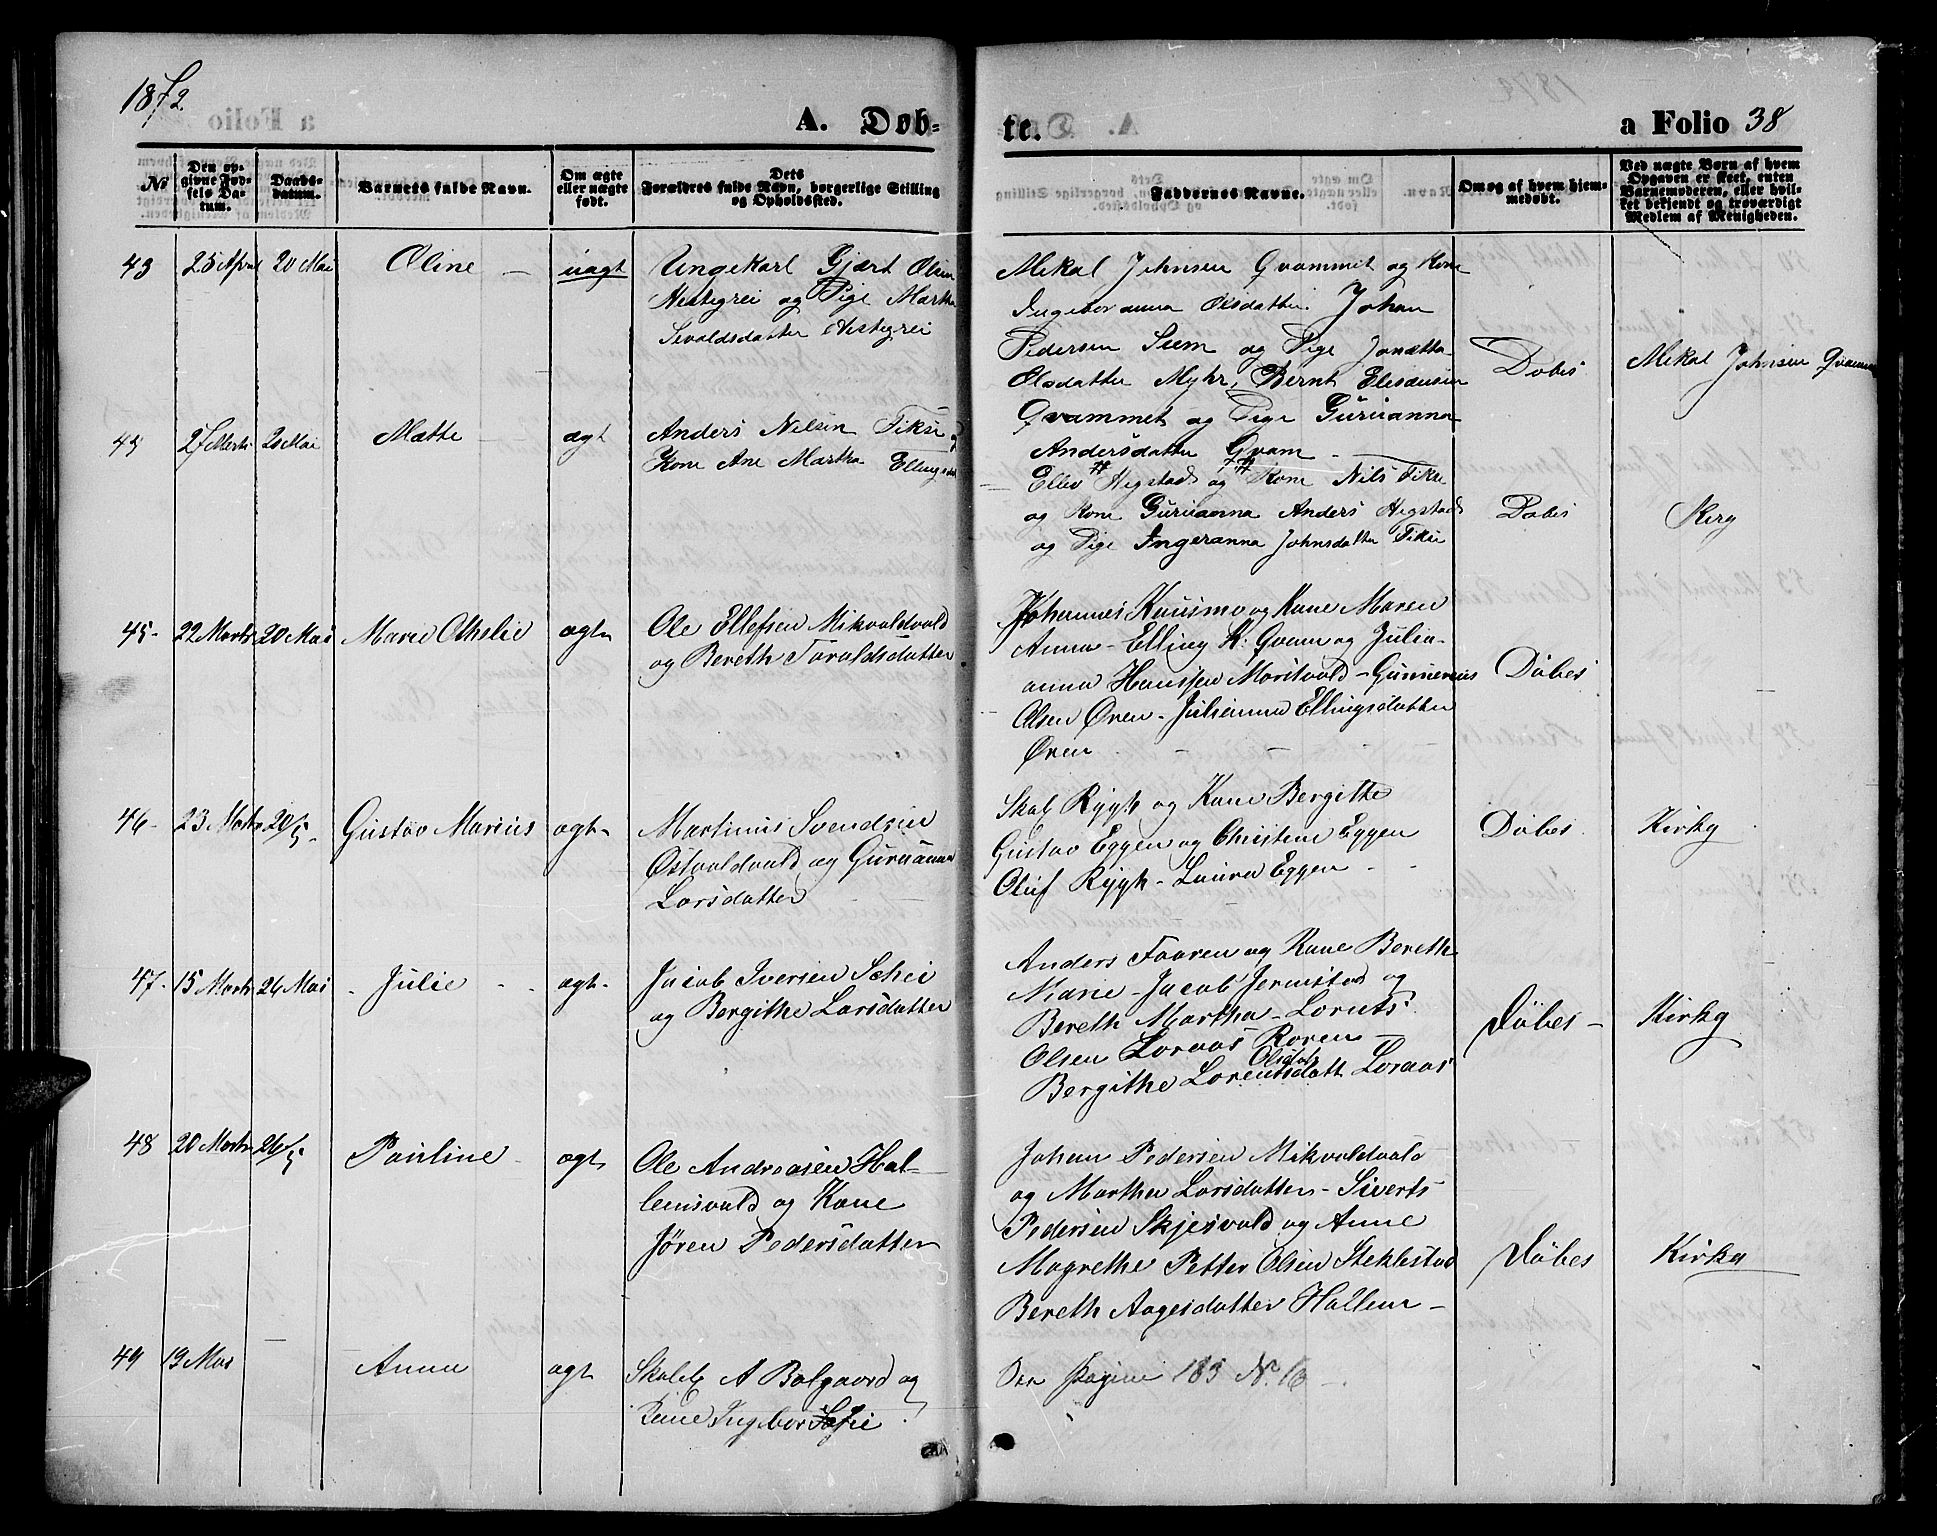 1872
A. Døb-
te.
a Folio 38
№
Den op-
givne Fød-
sels Da-
tum.
Daabs-
datum.
Barnets fulde Navn.
Om ægte
eller uægte
født.
Dets
Forældres fulde Navn, borgerlige Stilling
og Opholdssted.
Faddernes Navne.
Om og af hvem hjem-
medøbt.
Ved uægte Børn af hvem
Opgaven er skeet, enten
Barnemoderen, eller hvil-
ket bekjendt og troværdigt
Medlem af Menigheden.
43 25 April 20 Mai Oline - uægt
Ungekarl Gjært Olsen
Hestegrei og Pige Martha
Sevaldsdatter Hestegrei
Mikal Johnsen Qvammet og Kone
Ingeboranna Olsdatter. Johan
Pedersen Suem og Pige Jonætta
Olsdatter Myhr, Bernt Eliseusen
Qvammet og Pige Guruanna
Andersdatter Qvam -
Døbes
Mikal Johnsen Qvammet
45 27 Marts 20 Mai Mætte ægt
Anders Nilsen Fikse og
Kone Ane Martha Ellingsdat
Ellev Hegstad og Kone Nils Fikse
og Kone Guruanna Anders Hegstad
og Pige Ingeranna Johnsdatter Fikse
Døbes
Kirg
45- 22 Marts 20 Mai Marie Othelie ægte
Ole Ellefsen Mikvoldvald
og Bereth Taraldsdatter
Johannes Kausmo og Kone Maren
Anna - Elling K. Qvam og Julia-
anna Hanssen Moritvald - Gunnerius
Olsen Øren - Julianna Ellingsdatter
Øren
Døbes
46- 23 Marts 20/5- Gustav Marius ægt-
Martinus Svendsen
Østvoldvald og Guruanna
Larsdatter
Skal. Rygh og Kone Bergitte
Gustav Eggen og Christine Eggen
Oluf Rygh - Laura Eggen -
Døbes
Kirkg
47- 15 Marts 26 Mai - Julie - ægt-
Jacob Iversen Schei
og Bergithe Larsdatter
Anders Faaren og Kone Bereth
Marie - Jacob Jermstad og
Bereth Martha - Lornts
Olsen Loraas Roren -
Olsdat
Bergithe Lorentsdatt Loraas
Døbes -
Kirkg
48 20 Marts 26/5 Pauline - ægte
Ole Andreasen Hal-
lemsvald og Kone
Jøren Pedersdatter
Johan Pedersen Mikvoldvald
og Martha Larsdatter - Siverts
Pedersen Skjesvold og Anne
Magrethe Petter Olsen Steklestad
Bereth Aagesdatter Hallem -
Døbes
Kirkg
49 19 Mai - Anna ægt
Skolelr A Balgaard og
Kone Ingebor Sofie
See Pagina 183 N. 16 -